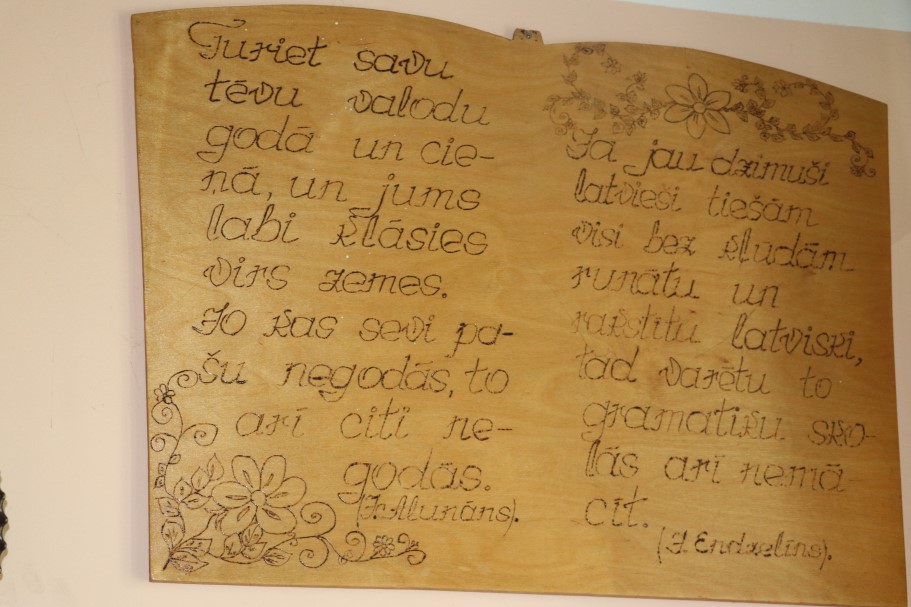 Turiet savu
tēvu valodu
godā un cie-
ņā, un jums
labi klāsies
virs zemes.
Jo kas sevi pa-
šu negodās, to
arī citi ne-
godās.
(J. Alunāns).
Ja jau dzimuši
latvieši tiešām
visi bez kļūdām
runātu un
rakstītu latviski,
tad varētu to
gramatiku sko-
lās arī nemā-
cīt.
(J. Endzelīns).